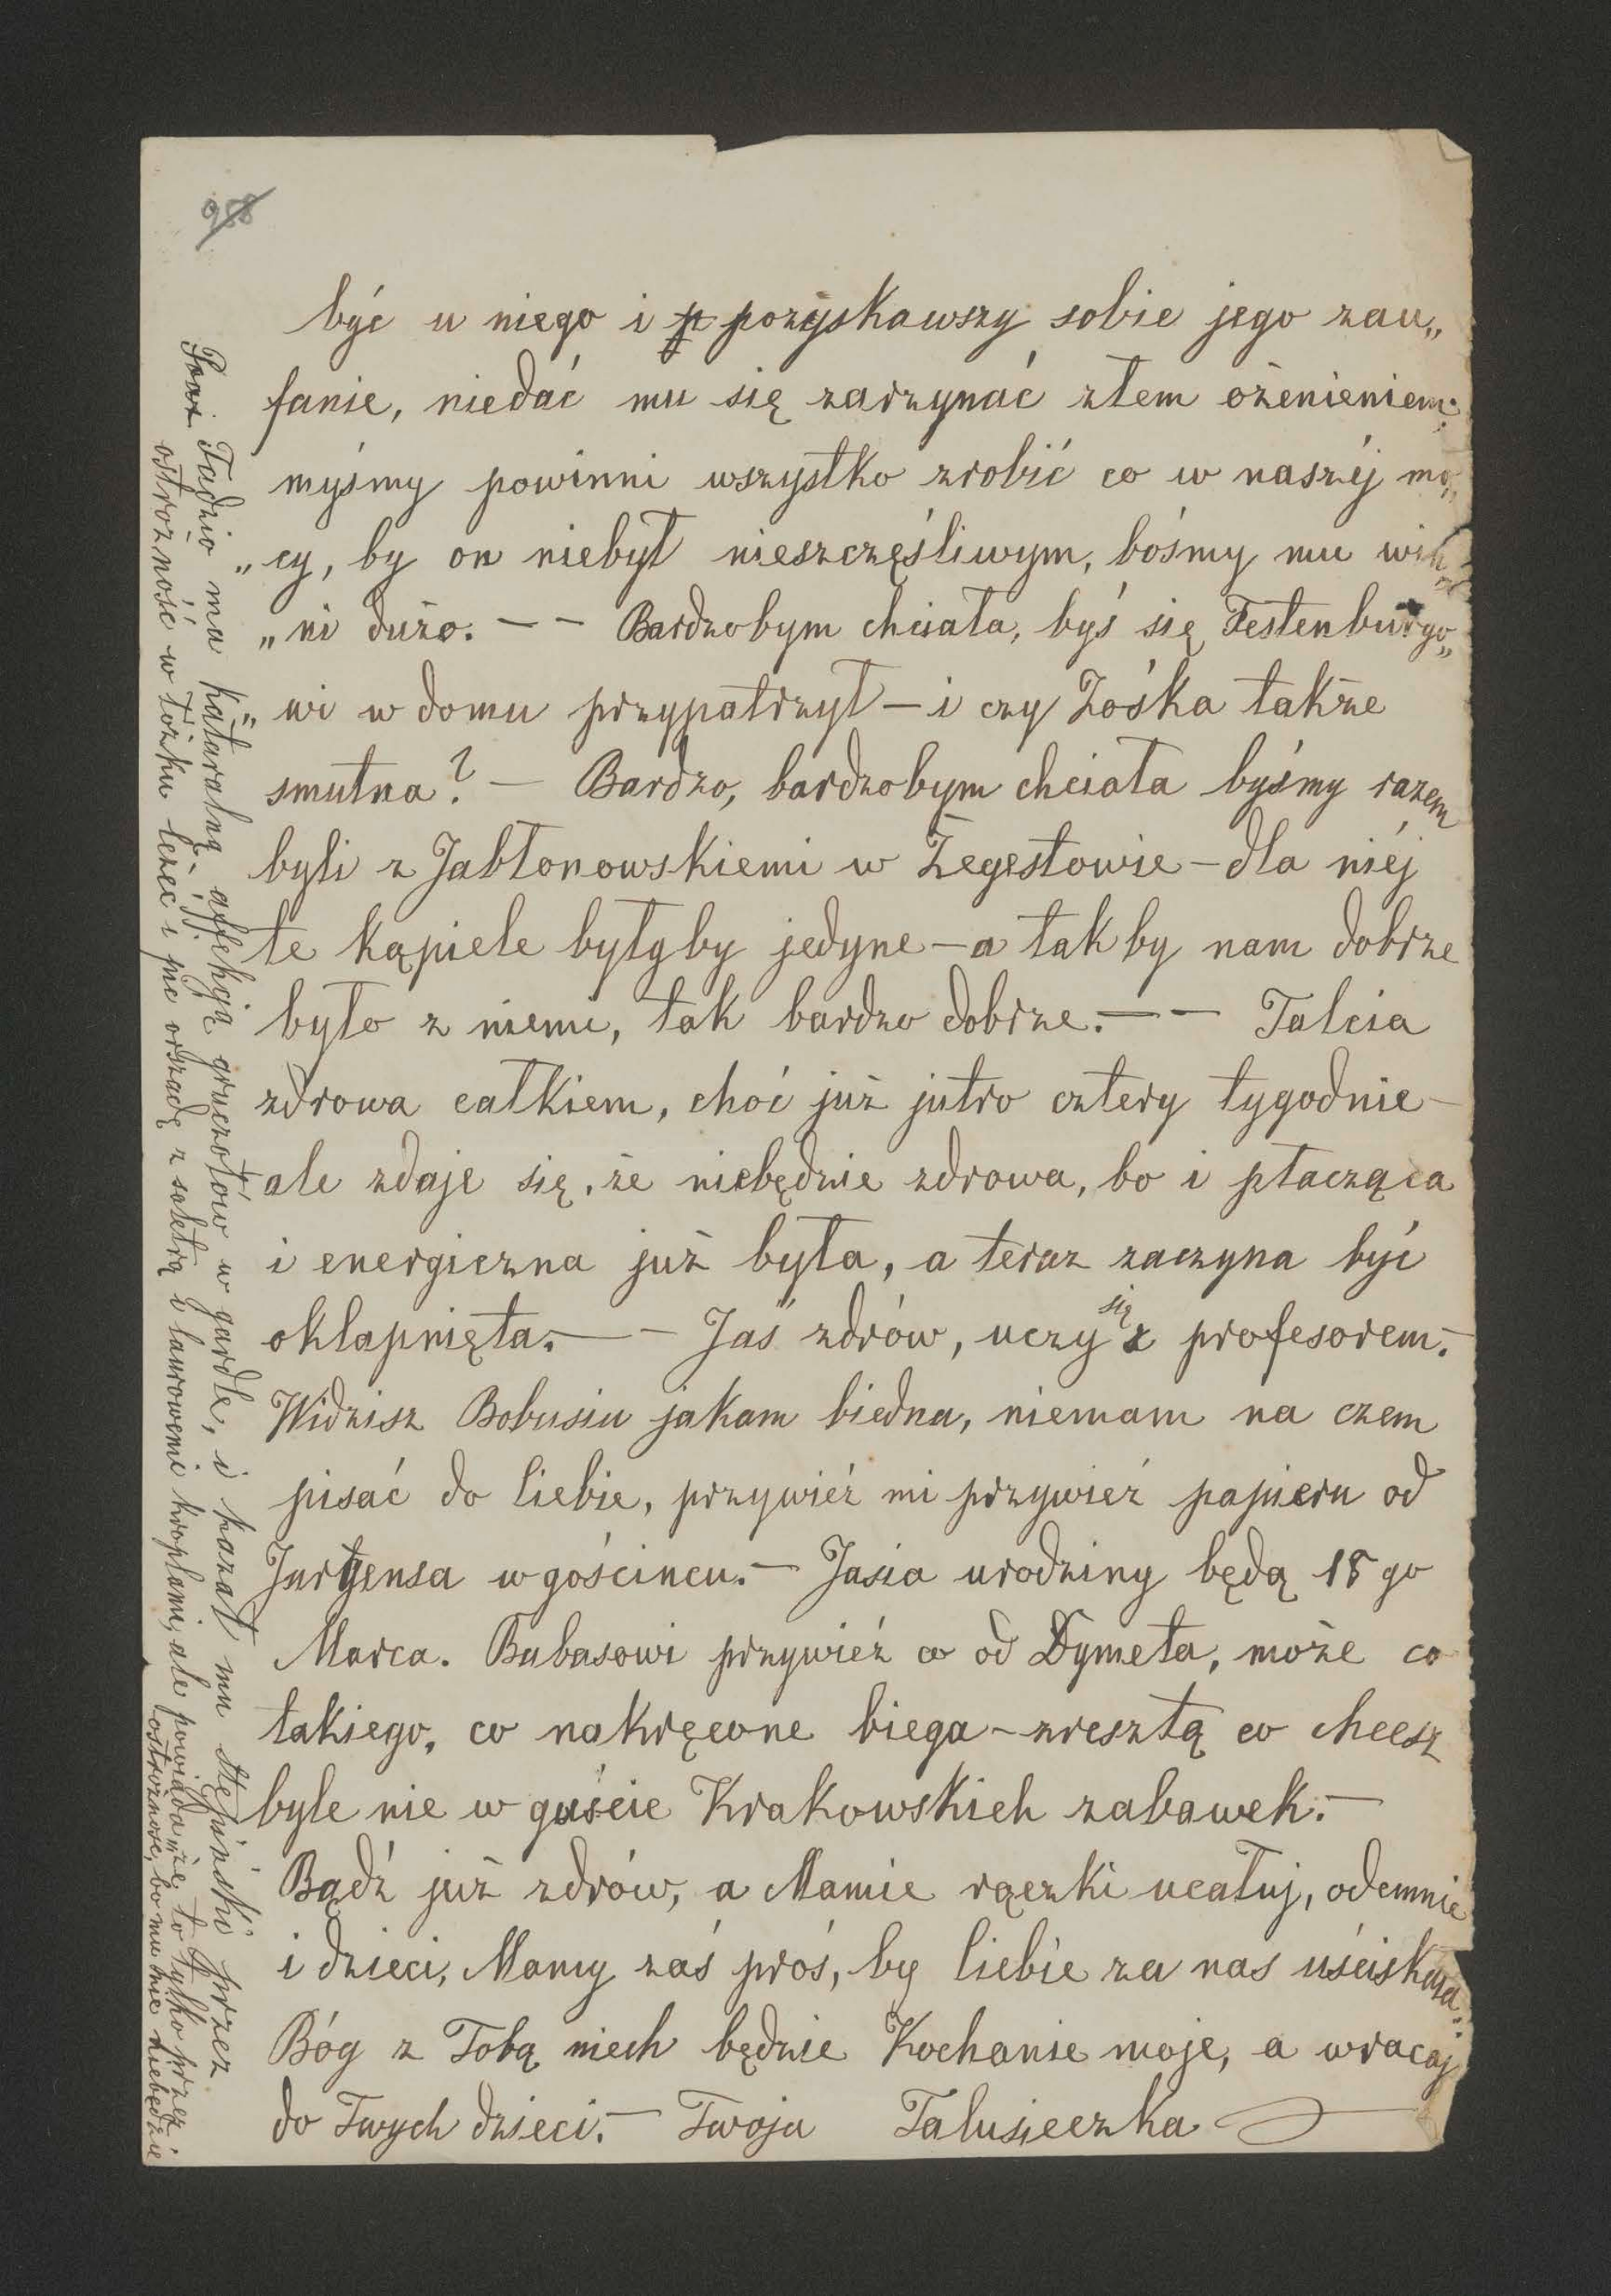 988
być u niego i p pozyskawszy sobie jego zau„
fanie, niedać mu się zarzynać złem ożenieniem;
myśmy powinni wszystko zrobić co w naszéj mo„
„cy, by on niebył nieszczęśliwym, bośmy mu win„
„ni dużo. — — Bardzobym chciała, byś się Festenburgo„
„wi w domu przypatrzył — i czy Zośka także
smutna? — Bardzo, bardzobym chciała byśmy razem
byli z Jabłonowskiemi w Żegestowie — dla niéj
te kąpiele byłyby jedyne — a tak by nam dobrze
było z niemi, tak bardzo dobrze. — — Talcia
zdrowa całkiem, choć już jutro cztery tygodnie —
ale zdaje się, że niebędzie zdrowa, bo i płacząca
i energiczna już była, a teraz zaczyna być
okłapnięta. — — Jaś zdrów, uczy się z profesorem. —
Widzisz Bobusiu jakam biedna, niemam na czem
pisać do Ciebie, przywieź mi przywieź papieru od
Jurgensa w gościncu. — Jasia urodziny będą 18go
Marca. Bubasowi przywieź co od Dymeta, może co
takiego, co nakręcone biega — zresztą co chcesz
byle nie w guście Krakowskich zabawek. —
Bądź już zdrów, a Mamie rączki ucałuj, odemnie
i dzieci, Mamy zaś proś, by Ciebie za nas uściskała.
Bóg z Tobą niech będzie Kochanie moje, a wracaj
do Twych dzieci. — Twoja Talusieczka
Tadzio ma kataralną affekcją gruczołów w gardle, i kazał mu Stępiński przez
ostrożność w łóżku leżeć i pić orszadę z saletrą i laurowemi kroplami, ale powiada że to tylko przez
ostrożność, bo mu nic niebędzie